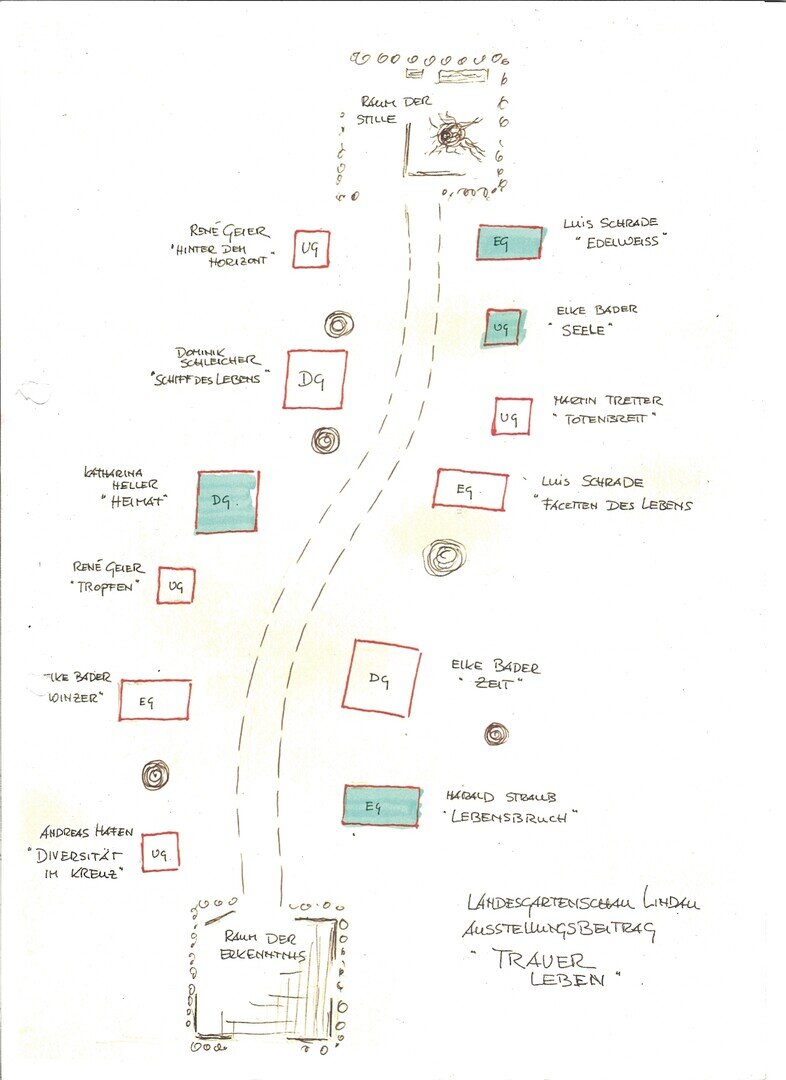 RAUM DER
STILLE
RENÉ GEIER
"HINTER DEM
HORIZONT"
UG
EG
LUIS SCHRADE
"EDELWEISS"
UG
ELKE BADER
"SEELE"
DOMINIK
SCHLEICHER
"SCHIFF DES LEBENS"
DG
UG
MARTIN TRETTER
"TOTENBRETT"
KATHARINA
HELLER
"HEIMAT"
DG
EG
LUIS SCHRADE
"FACETTEN DES LEBENS
RENÉ GEIER
"TROPFEN"
UG
LKE BADER
WINZER"
EG
DG
ELKE BADER
"ZEIT"
EG
HARALD STRAUB
"LEBENSBRUCH"
ANDREAS HAFEN
"DIVERSITÄT
IM KREUZ"
UG
RAUM DER
ERKENNTNIS
LANDESGARTENSCHAU LINDAU
AUSSTELLUNGSBEITRAG
"TRAUER
LEBEN"